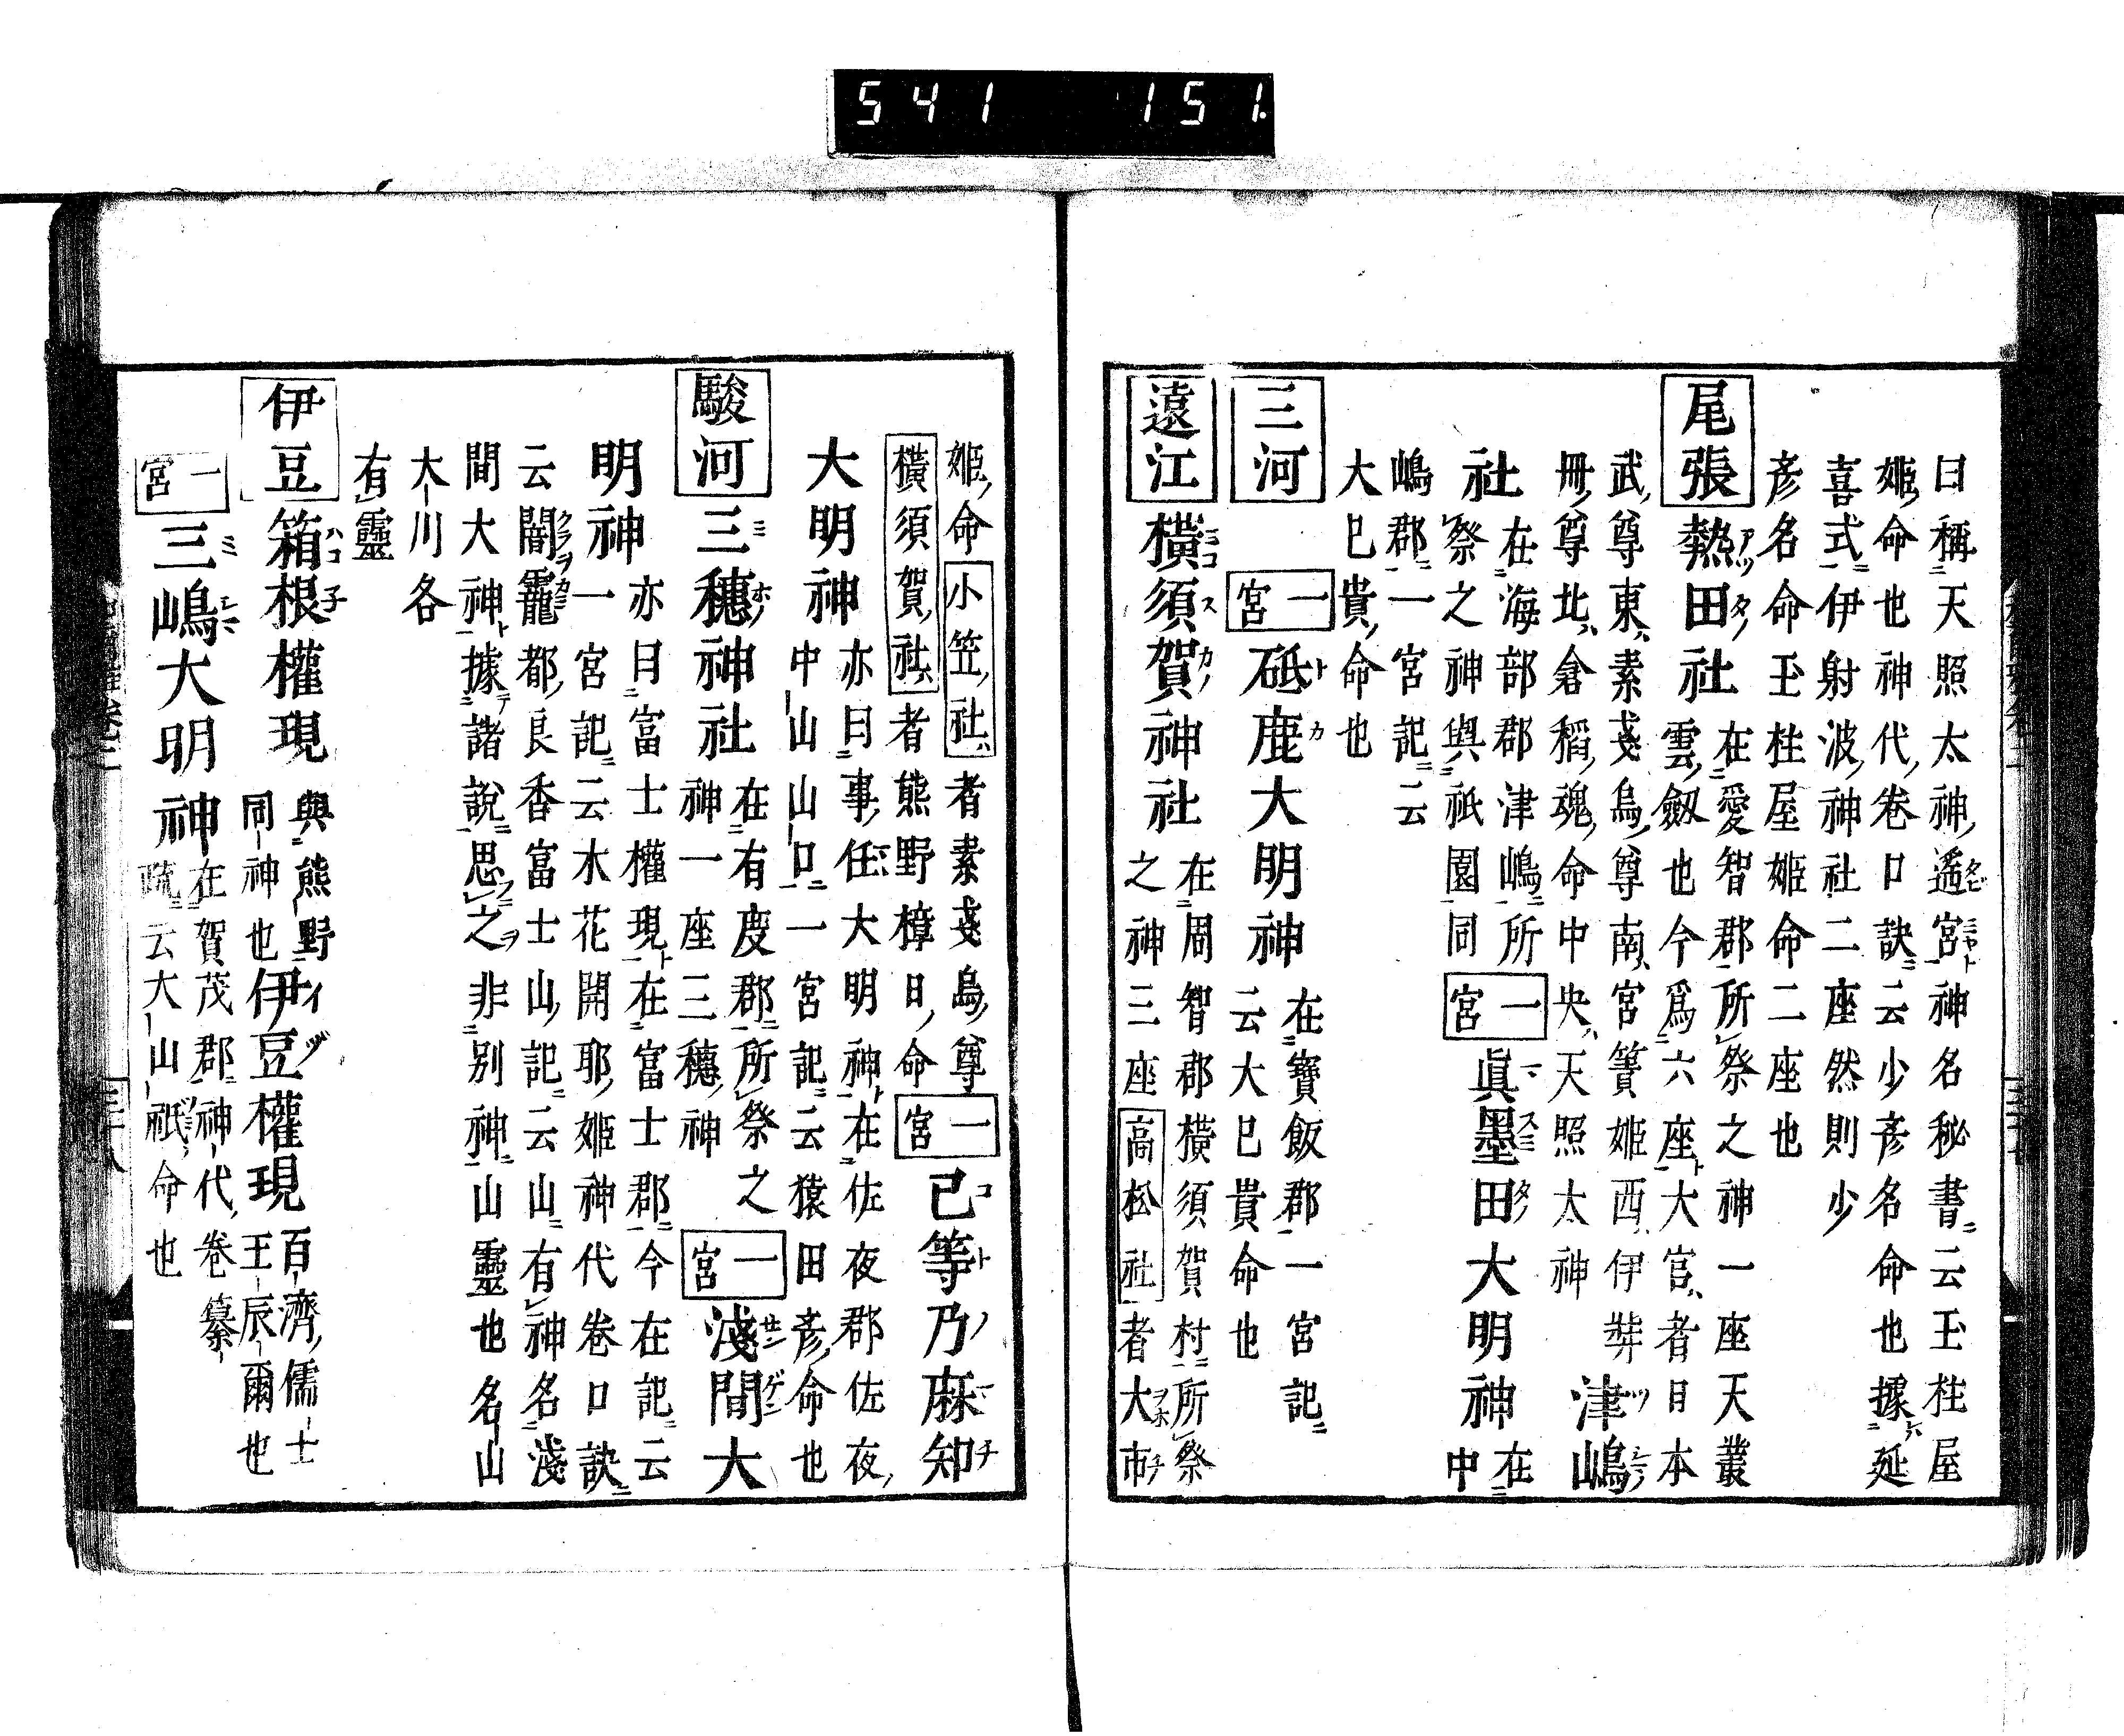 541 151
曰稱天照太神遙宮神名秘書云玉柱屋
姬命也神代卷口訣云少彥名命也據延
喜式伊射波神社二座然則少
彥名命玉柱屋姬命二座也
尾張 熱田社 在愛智郡所祭之神一座天叢
雲劔也今爲六座大宮者日本
武尊東素戔烏尊南宮簀姬西伊弉
冊尊北倉稻魂命中央天照太神 津嶋
社 在海部郡津嶋所
祭之神與祇園同 一宮 眞墨田大明神 在
中
嶋郡一宮記云
大已貴命也
三河 一宮 砥鹿大明神 在寶飯郡一宮記
云大已貴命也
遠江 橫須賀神社 在周智郡橫須賀村所祭
之神三座高松社者大市
姬命小笠社者素戔烏尊 一宮 己等乃麻知
橫須賀社者熊野樟日命
大明神 亦曰事任大明神在佐夜郡佐夜
中山山口一宮記云猿田彥命也
駿河 三穗神社 在有度郡所祭之
神一座三穗神 一宮 淺間大
明神 亦曰富士權現在富士郡今在記云
一宮記云木花開耶姬神代卷口訣
云闇龗都良香富士山記云山有神名淺
間大神據諸說思之非別神山靈也名山
大川各
有靈
伊豆 箱根權現 與熊野
同神也 伊豆權現 百濟儒士
王辰爾也
一宮 三嶋大明神 在賀茂郡神代卷纂
疏云大山祇命也